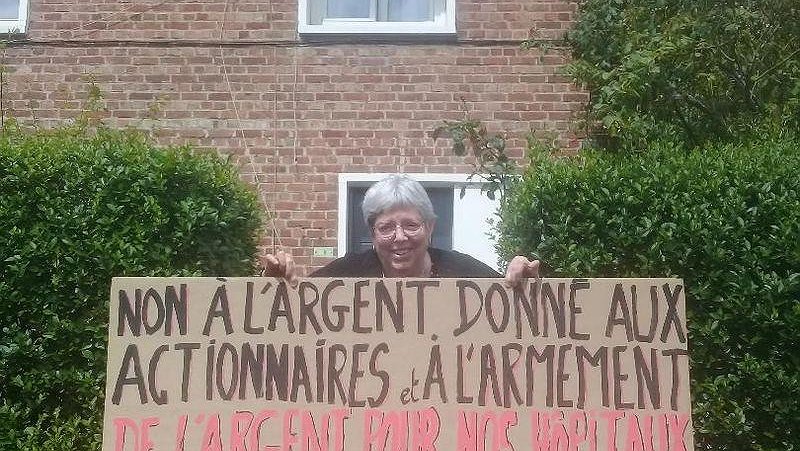 NON À L'ARGENT DONNÉ AUX
ACTIONNAIRES et À L'ARMEMENT
DE L'ARGENT POUR NOS HÔPITAUX